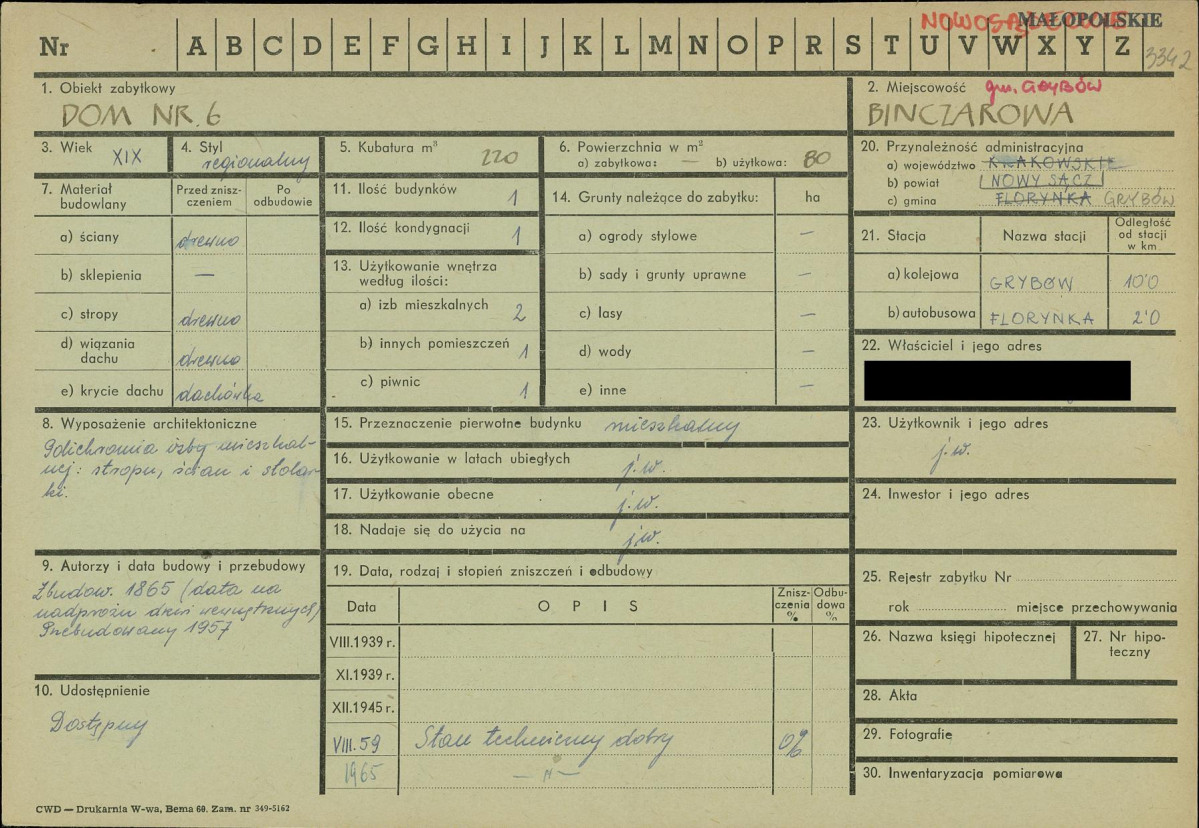 Nr A B C D E F G H I J K L M N O P R S T U V W X Y Z
MAŁOPOLSKIE
3342
1. Obiekt zabytkowy
DOM NR. 6
2. Miejscowość gm. GRYBÓW
BINCZAROWA
3. Wiek XIX
4. Styl regionalny
5. Kubatura m³ 220
6. Powierzchnia w m²
a) zabytkowa: — b) użytkowa: 80
7. Materiał budowlany
Przed zniszczeniem
Po odbudowie
a) ściany drewno
b) sklepienia —
c) stropy drewno
d) wiązania dachu drewno
e) krycie dachu dachówka
8. Wyposażenie architektoniczne
Polichromia izby mieszkal-
nej: stropu, ścian i stolar
ki.
9. Autorzy i data budowy i przebudowy
Zbudow. 1865 (data na
nadprożu drzwi wewnętrznych)
Przebudowany 1957
10. Udostępnienie
Dostępny
11. Ilość budynków 1
12. Ilość kondygnacji 1
13. Użytkowanie wnętrza
według ilości:
a) izb mieszkalnych 2
b) innych pomieszczeń 1
c) piwnic 1
14. Grunty należące do zabytku: ha
a) ogrody stylowe —
b) sady i grunty uprawne —
c) lasy —
d) wody —
e) inne —
15. Przeznaczenie pierwotne budynku mieszkalny
16. Użytkowanie w latach ubiegłych j.w.
17. Użytkowanie obecne j.w.
18. Nadaje się do użycia na j.w.
19. Data, rodzaj i stopień zniszczeń i odbudowy
Data OPIS Zniszczenia % Odbudowa %
VIII.1939 r.
XI.1939 r.
XII.1945 r.
VIII.59 Stan techniczny dobry 0%
1965 — " —
20. Przynależność administracyjna
a) województwo KRAKOWSKIE
b) powiat NOWY SĄCZ
c) gmina FLORYNKA GRYBÓW
21. Stacja
Nazwa stacji
Odległość od stacji w km
a) kolejowa GRYBÓW 10'0
b) autobusowa FLORYNKA 2'0
22. Właściciel i jego adres
23. Użytkownik i jego adres
j.w.
24. Inwestor i jego adres
25. Rejestr zabytku Nr
rok miejsce przechowywania
26. Nazwa księgi hipotecznej
27. Nr hipoteczny
28. Akta
29. Fotografie
30. Inwentaryzacja pomiarowa
CWD — Drukarnia W-wa, Bema 60. Zam. nr 349-5162